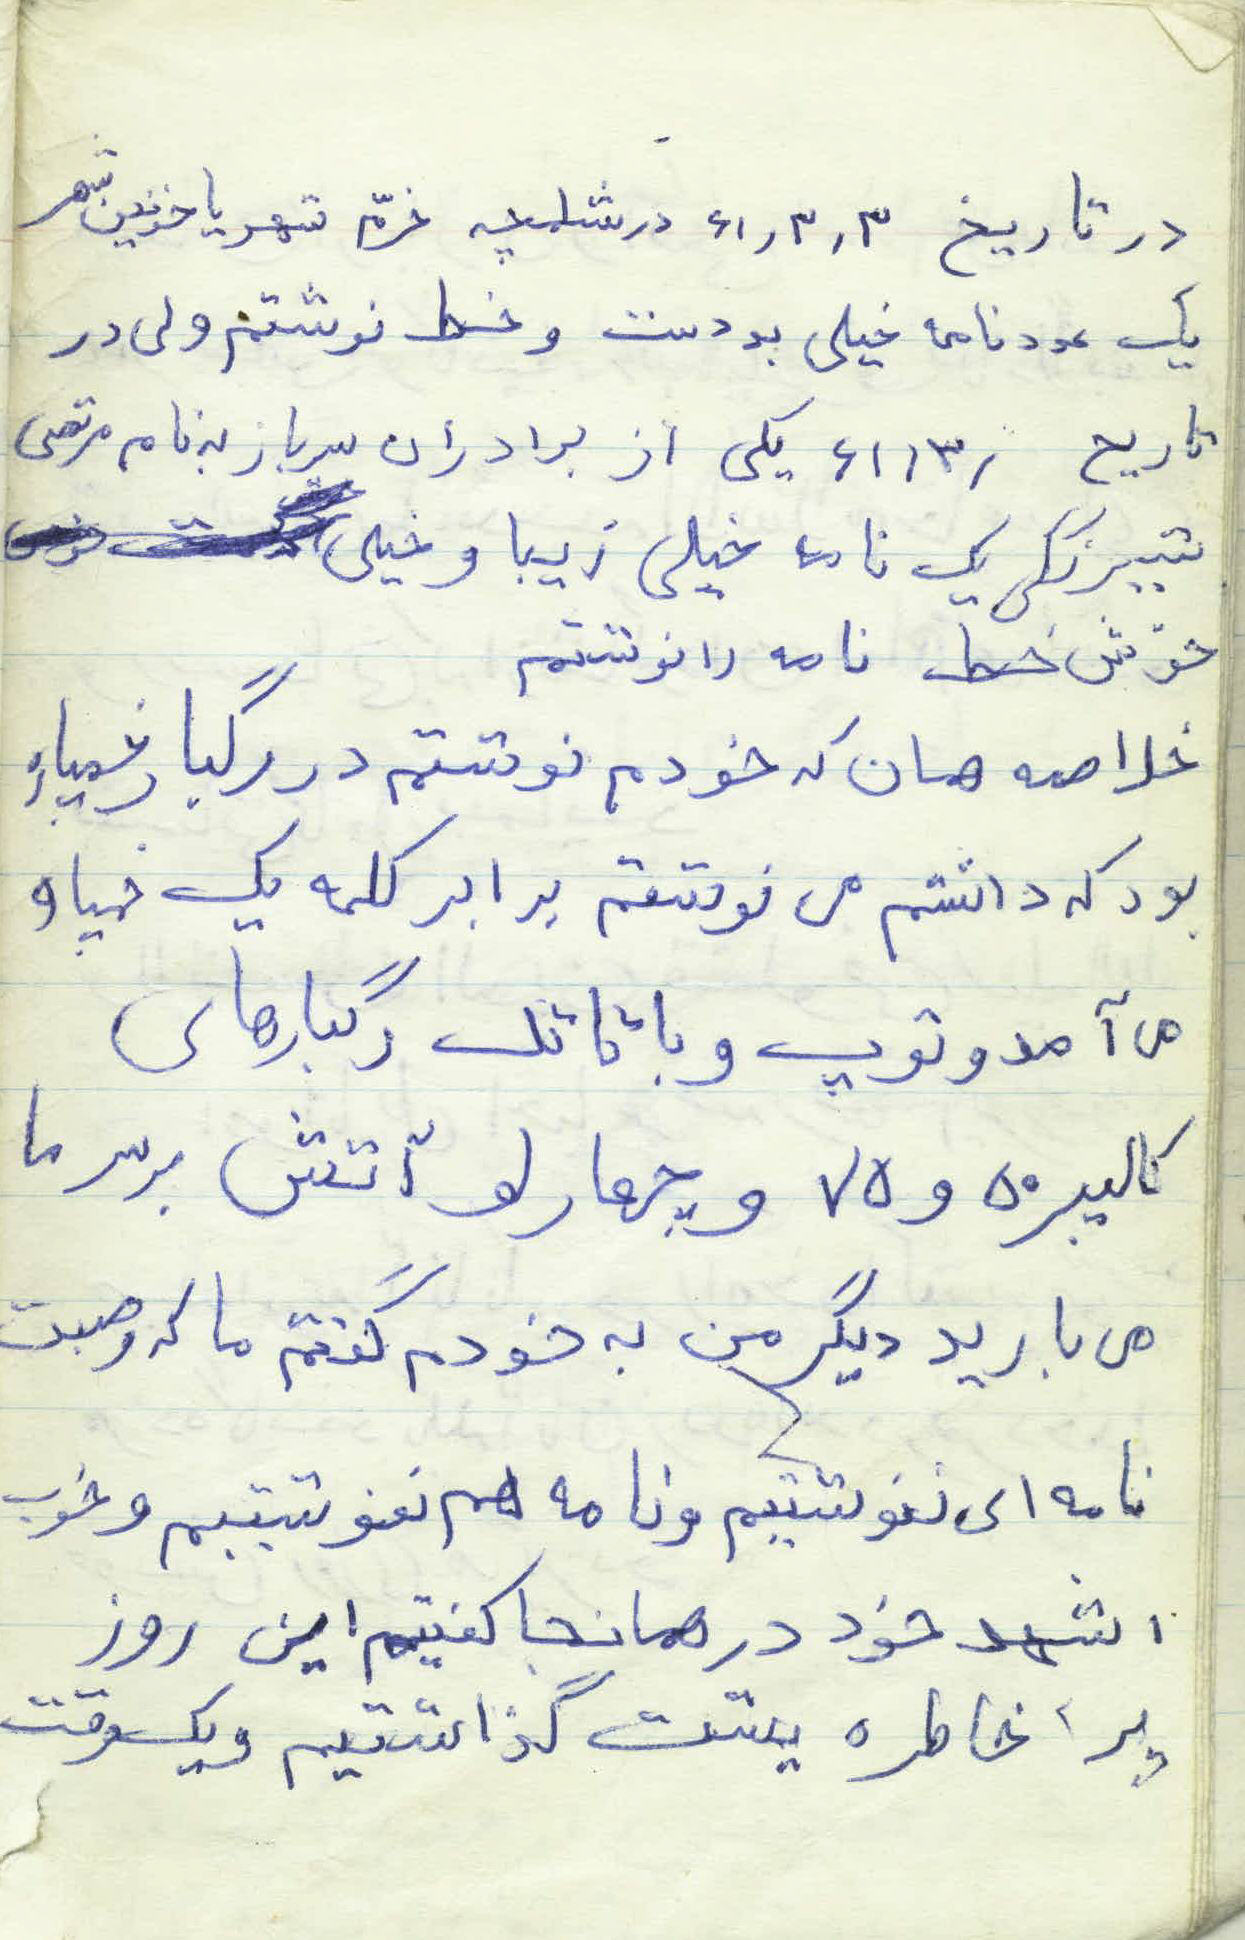 در تاریخ ۶۱٫۳٫۳ در شلمچه خرّم شهر یا خونین شهر
یک عدد نامه خیلی بو دست و خط نوشتم ولی در
تاریخ ۶۱٫۱۳٫ یکی از برادران سرباز به نام مرتضی
یک نامه خیلی زیبا و خیلی
خوش خط نامه را نوشتم
خلاصه همان که خودم نوشتم در رگبار خمپاره
بود که داشتم می نوشتم برابر کلمه یک خمپاره
می آمد و توپ و با تا تانک رگبارهای
کالیبر ۵۰ و ۷۵ و چهار لو آتش بر سر ما
می بارید دیگر من به خودم گفتم ما که وصیت
نامه ای ننوشتیم و نامه هم ننوشتیم و خوب
اشهد خود در همانجا گفتیم این روز
پر از خاطره پشت گذاشتیم و یکوقت